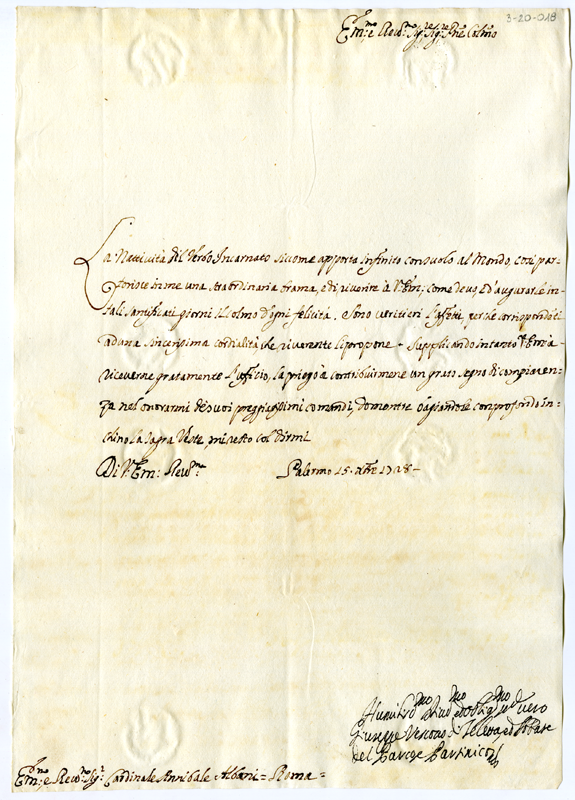 3-20-018
Em:mo e Rev:mo Sig:re Sig:re P̃ne Colmo
La Nattività del Verbo Incarnato siccome apporta infinito consuolo al Mondo, così par-
torisce in me una straordinaria brama, e di riverire à V. Em:, come devo, ed augurarle in
tali santificati giorni il colmo d'ogni felicità. Sono veritieri l'affetti, perche corrispondenti
ad una sincerissima cordialità che riverente le propone. Supplicando intanto V. Em: à
riceverne gratamente l'ufficio, la priego à contribuirmene un grato segno di compiacen=
za nel onorarmi de suoi pregiatissimi comandi, domentre bagiandole con profondo in=
chino la sagra Veste, mi resto col dirmi
Di V: Em: Rev:ma Palermo 15. Xbre 1728-
Humil:mo Div:mo ed Obblig:mo Servo vero
Giuseppe Vescovo ed Abbate
del Parco e Partinico
Em:mo e Rev:mo Sig:r Cardinale Annibale Albani = Roma =